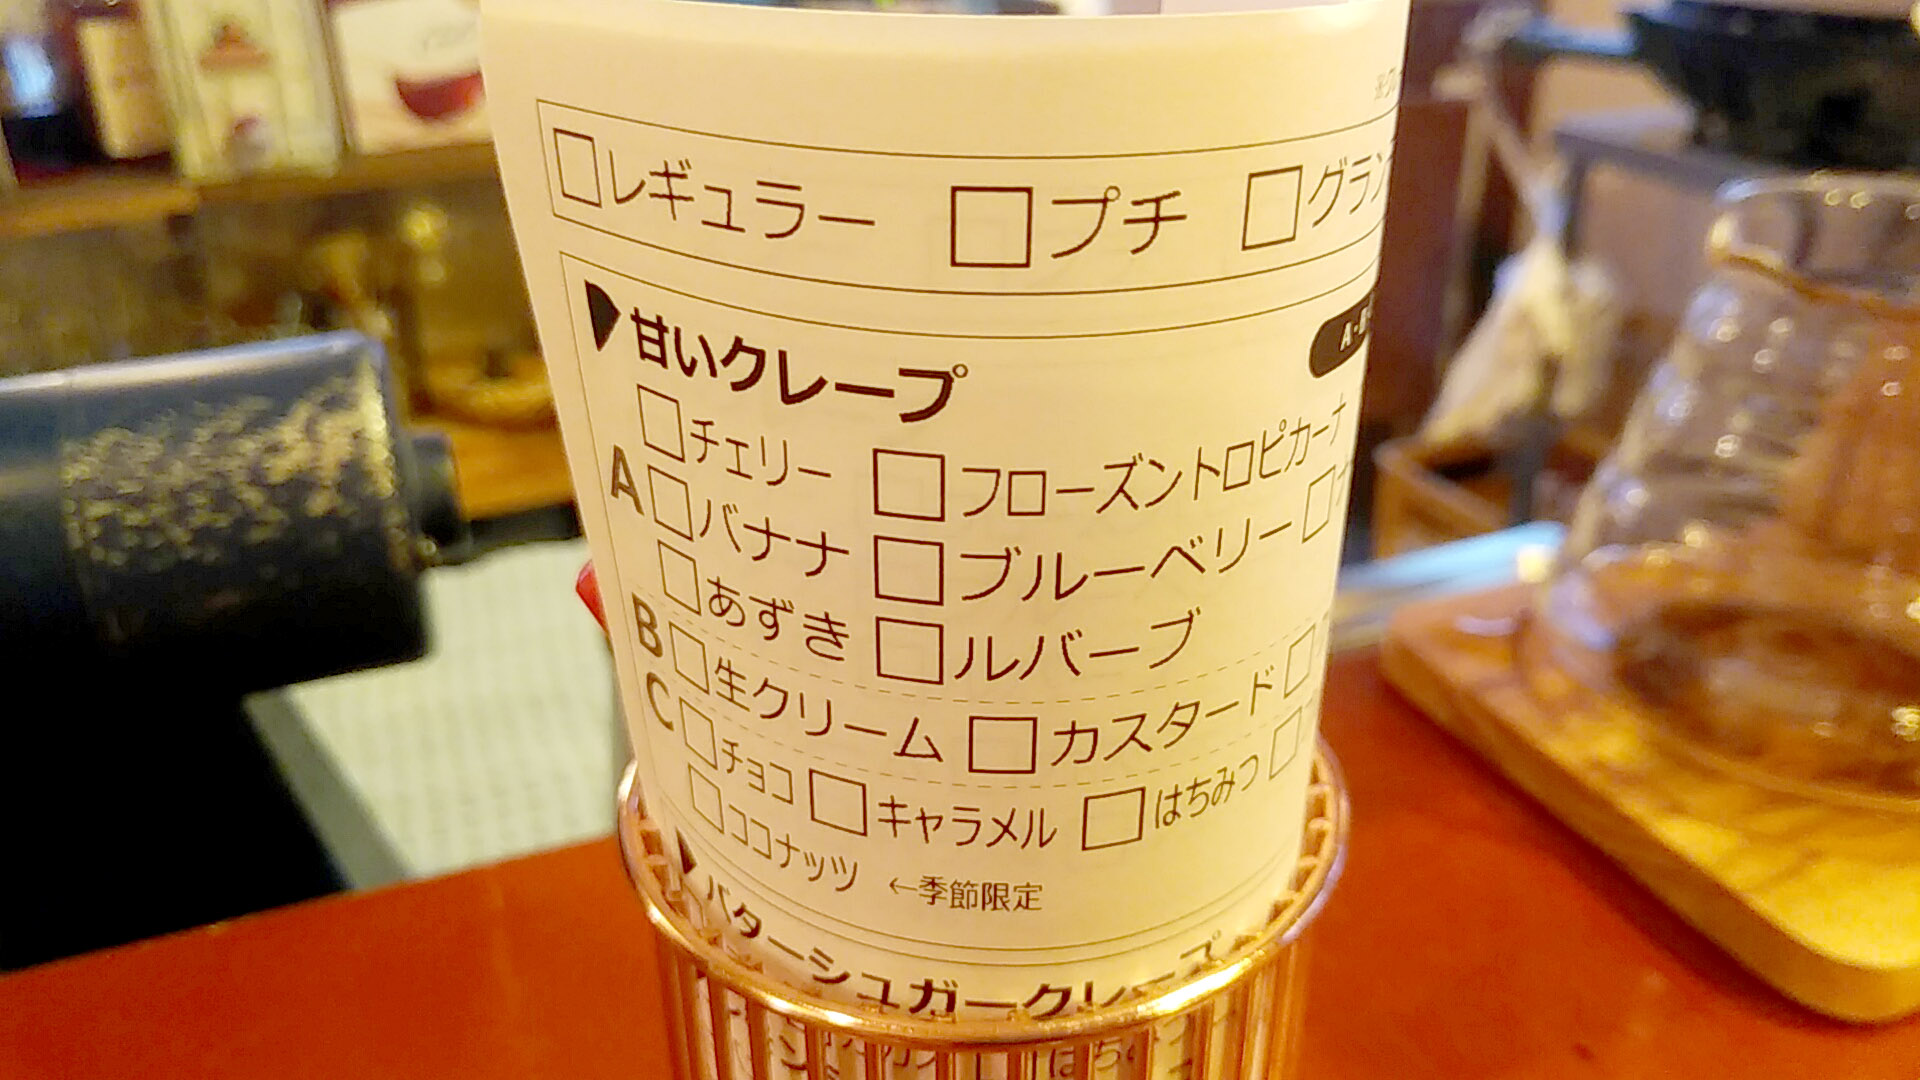 □レギュラー □プチ □グラン
▶甘いクレープ
□チェリー □フローズントロピカーナ
A □バナナ □ブルーベリー □
□あずき □ルバーブ
B □生クリーム □カスタード □
C □チョコ □キャラメル □はちみつ □
□ココナッツ ←季節限定
▶バターシュガークレープ